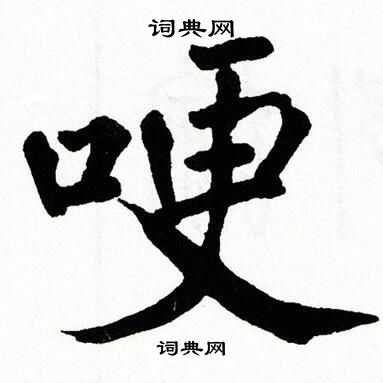 词典网
哽
词典网